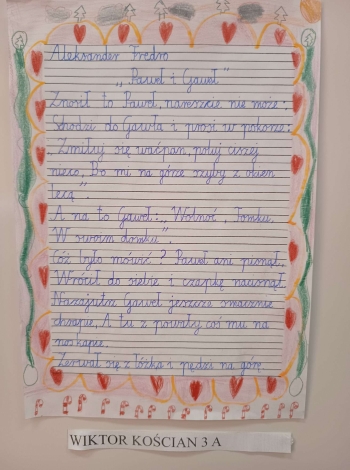 Aleksander Fredro
„Paweł i Gaweł"
Znosił to Paweł, nareszcie nie może;
Schodzi do Gawła i prosi w pokorze:
„Zmiłuj się waćpan, poluj ciszej
nieco, Bo mi na górze szyby z okien
lecą".
A na to Gaweł: „Wolnoć, Tomku,
W swoim domku".
Cóż było mówić? Paweł ani pisnął,
Wrócił do siebie i czapkę nacisnął.
Nazajutrz Gaweł jeszcze smacznie
chrapie, A tu z powały coś mu na
nos kapie.
Zerwał się z łóżka i pędzi na górę.
WIKTOR KOŚCIAN 3 A